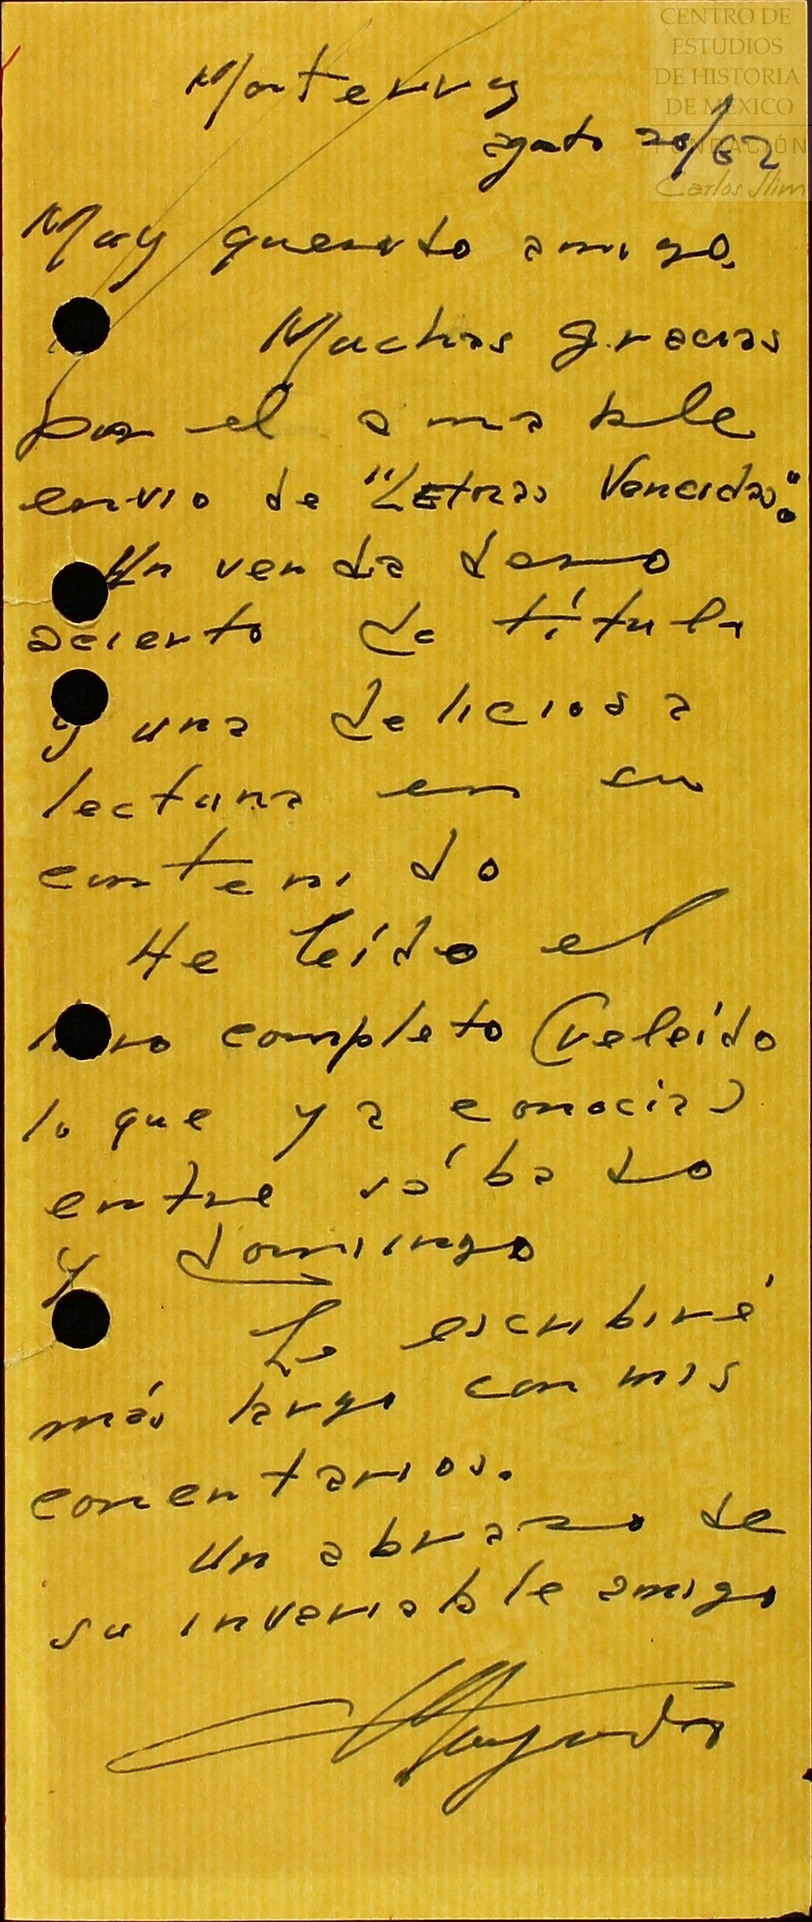 CENTRO DE
ESTUDIOS
DE HISTORIA
DE MÉXICO
FUNDACIÓN
Carlos Slim
Monterrey
agosto 20/62
Muy querido amigo,
Muchas gracias
por el amable
envio de "Letras Vencidas".
Un verdadero
acierto de título
y una deliciosa
lectura en su
contenido
He leído el
libro completo (releído
lo que ya conocia)
entre sábado
y domingo
Le escribiré
más largo con mis
comentarios.
Un abrazo de
su invariable amigo